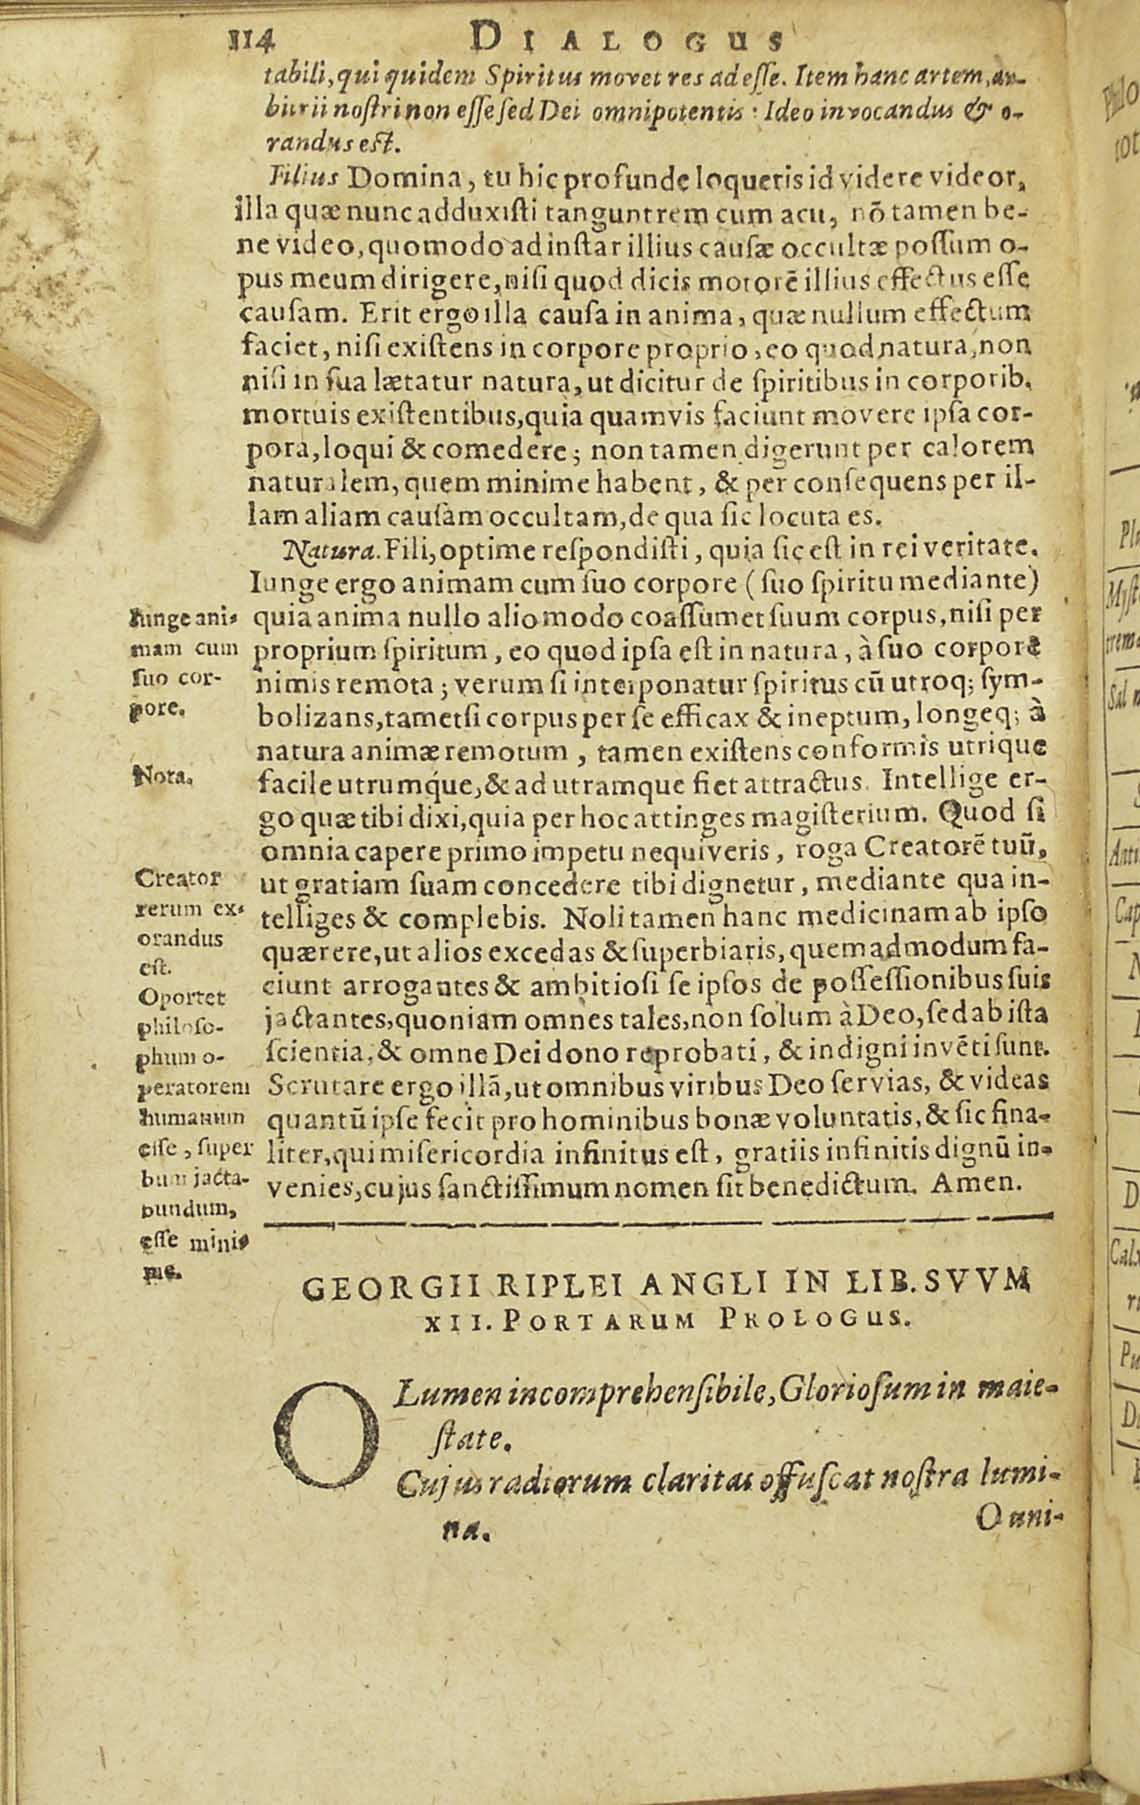 114 DIALOGUS
tabili, qui quidem Spiritus movet res ad esse. Item hanc artem, ar-
bitrii nostri non esse sed Dei omnipotentis: Ideo invocandus & o-
randus est.
Filius Domina, tu hic profunde loqueris id videre videor,
illa quæ nunc adduxisti tangunt rem cum acu, nō tamen be-
ne video, quomodo ad instar illius causæ occultæ possum o-
pus meum dirigere, nisi quod dicis motorē illius effectus esse
causam. Erit ergo illa causa in anima, quæ nullum effectum
faciet, nisi existens in corpore proprio, eo quod natura, non
nisi in sua lætatur natura, ut dicitur de spiritibus in corporib.
mortuis existentibus, quia quamvis faciunt movere ipsa cor-
pora, loqui & comedere; non tamen digerunt per calorem
naturalem, quem minime habent, & per consequens per il-
lam aliam causam occultam, de qua sic locuta es.
Natura. Fili, optime respondisti, quia sic est in rei veritate.
Iunge ergo animam cum suo corpore (suo spiritu mediante)
quia anima nullo alio modo coassumet suum corpus, nisi per
proprium spiritum, eo quod ipsa est in natura, à suo corpore
nimis remota; verum si interponatur spiritus cū utroq; sym-
bolizans, tametsi corpus per se efficax & ineptum, longeq; à
natura animæ remotum, tamen existens conformis utrique
facile utrumq́ue, & ad utramque fiet attractus. Intellige er-
go quæ tibi dixi, quia per hoc attinges magisterium. Quod si
omnia capere primo impetu nequiveris, roga Creatorē tuū,
ut gratiam suam concedere tibi dignetur, mediante qua in-
telliges & complebis. Noli tamen hanc medicinam ab ipso
quærere, ut alios excedas & superbiaris, quemadmodum fa-
ciunt arrogantes & ambitiosi se ipsos de possessionibus suis
jactantes, quoniam omnes tales, non solum à Deo, sed ab ista
scientia, & omne Dei dono reprobati, & indigni invēti sunt.
Scrutare ergo illā, ut omnibus viribus Deo servias, & videas
quantū ipse fecit pro hominibus bonæ voluntatis, & sic fina-
liter, qui misericordia infinitus est, gratiis infinitis dignū in-
venies, cujus sanctissimum nomen sit benedictum. Amen.
Iunge ani-
mam cum
suo cor-
pore.
Nota.
Creator
rerum ex-
orandus
est.
Oportet
philoso-
phum o-
peratorem
humanum
esse, super
bum jacta-
bundum,
esse mini-
me.
GEORGII RIPLEI ANGLI IN LIB. SVVM
XII. PORTARUM PROLOGUS.
O Lumen incomprehensibile, Gloriosum in maie-
state.
Cujus radiorum claritas offuscat nostra lumi-
na.
O uni-